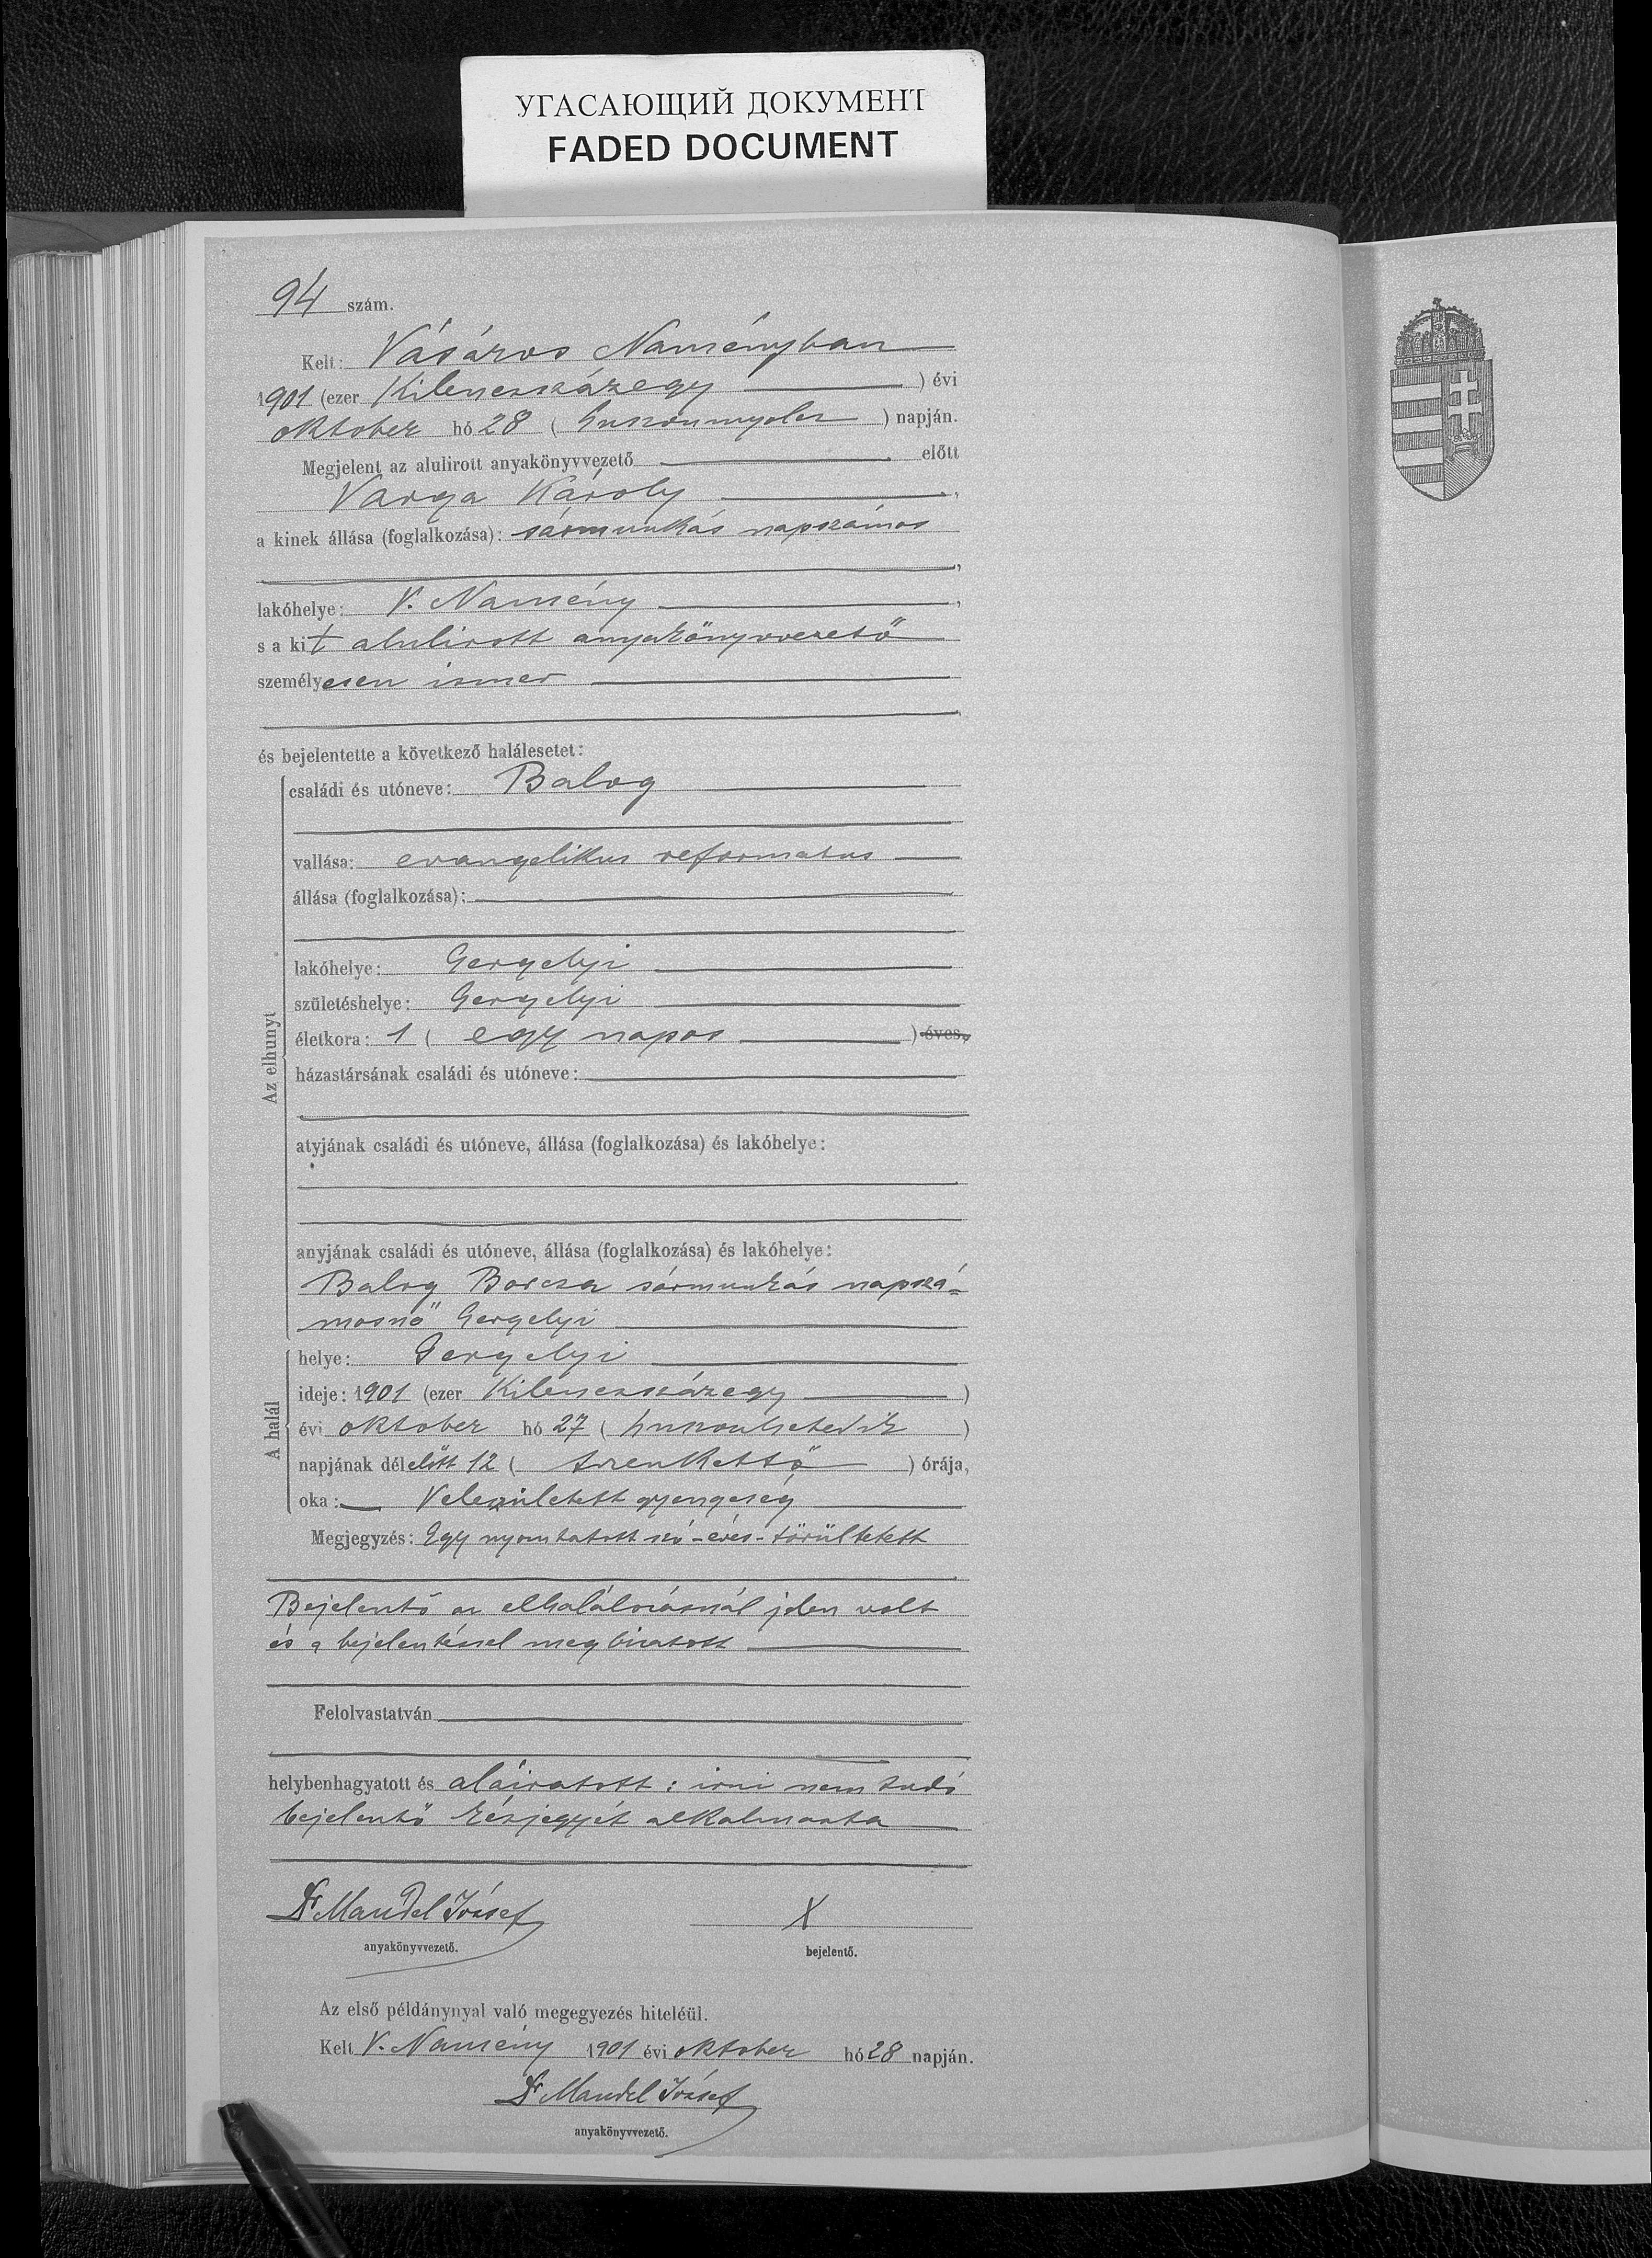 УГАСАЮЩИЙ ДОКУМЕНТ
FADED DOCUMENT
94 szám.
Kelt: Vásáros Naményban
1901 (ezer Kilenczszázegy ) évi
oktober hó 28 ( huszonnyolcz ) napján.
Megjelent az alulirott anyakönyvvezető előtt
Varga Károly ,
a kinek állása (foglalkozása): sármunkás napszámos
,
lakóhelye: V. Namény ,
s a kit alulirott anyakönyvvezető
személyesen ismer
,
és bejelentette a következő halálesetet:
Az elhunyt
családi és utóneve: Balog
vallása: evangelikus reformatus
állása (foglalkozása):
lakóhelye: Gergelyi
születéshelye: Gergelyi
életkora: 1 ( egy napos ) éves,
házastársának családi és utóneve:
atyjának családi és utóneve, állása (foglalkozása) és lakóhelye:
anyjának családi és utóneve, állása (foglalkozása) és lakóhelye:
Balog Borcsa sármunkás napszá-
mosnő Gergelyi
A halál
helye: Gergelyi
ideje: 1901 (ezer Kilenczszázegy )
évi oktober hó 27 ( huszonhetedik )
napjának délelőtt 12 ( tizenkettő ) órája,
oka: Veleszületett gyengeség
Megjegyzés: Egy nyomtatott szó -éves- töröltetett
Bejelentő az elhalálozásnál jelen volt
és a bejelentéssel megbizatott
Felolvastatván
helybenhagyatott és aláiratott; irni nem tudó
bejelentő kézjegyét alkalmazta
Dr Mandel József
anyakönyvvezető.
X
bejelentő.
Az első példánynyal való megegyezés hiteléül.
Kelt V. Namény 1901 évi oktober hó 28 napján.
Dr Mandel József
anyakönyvvezető.